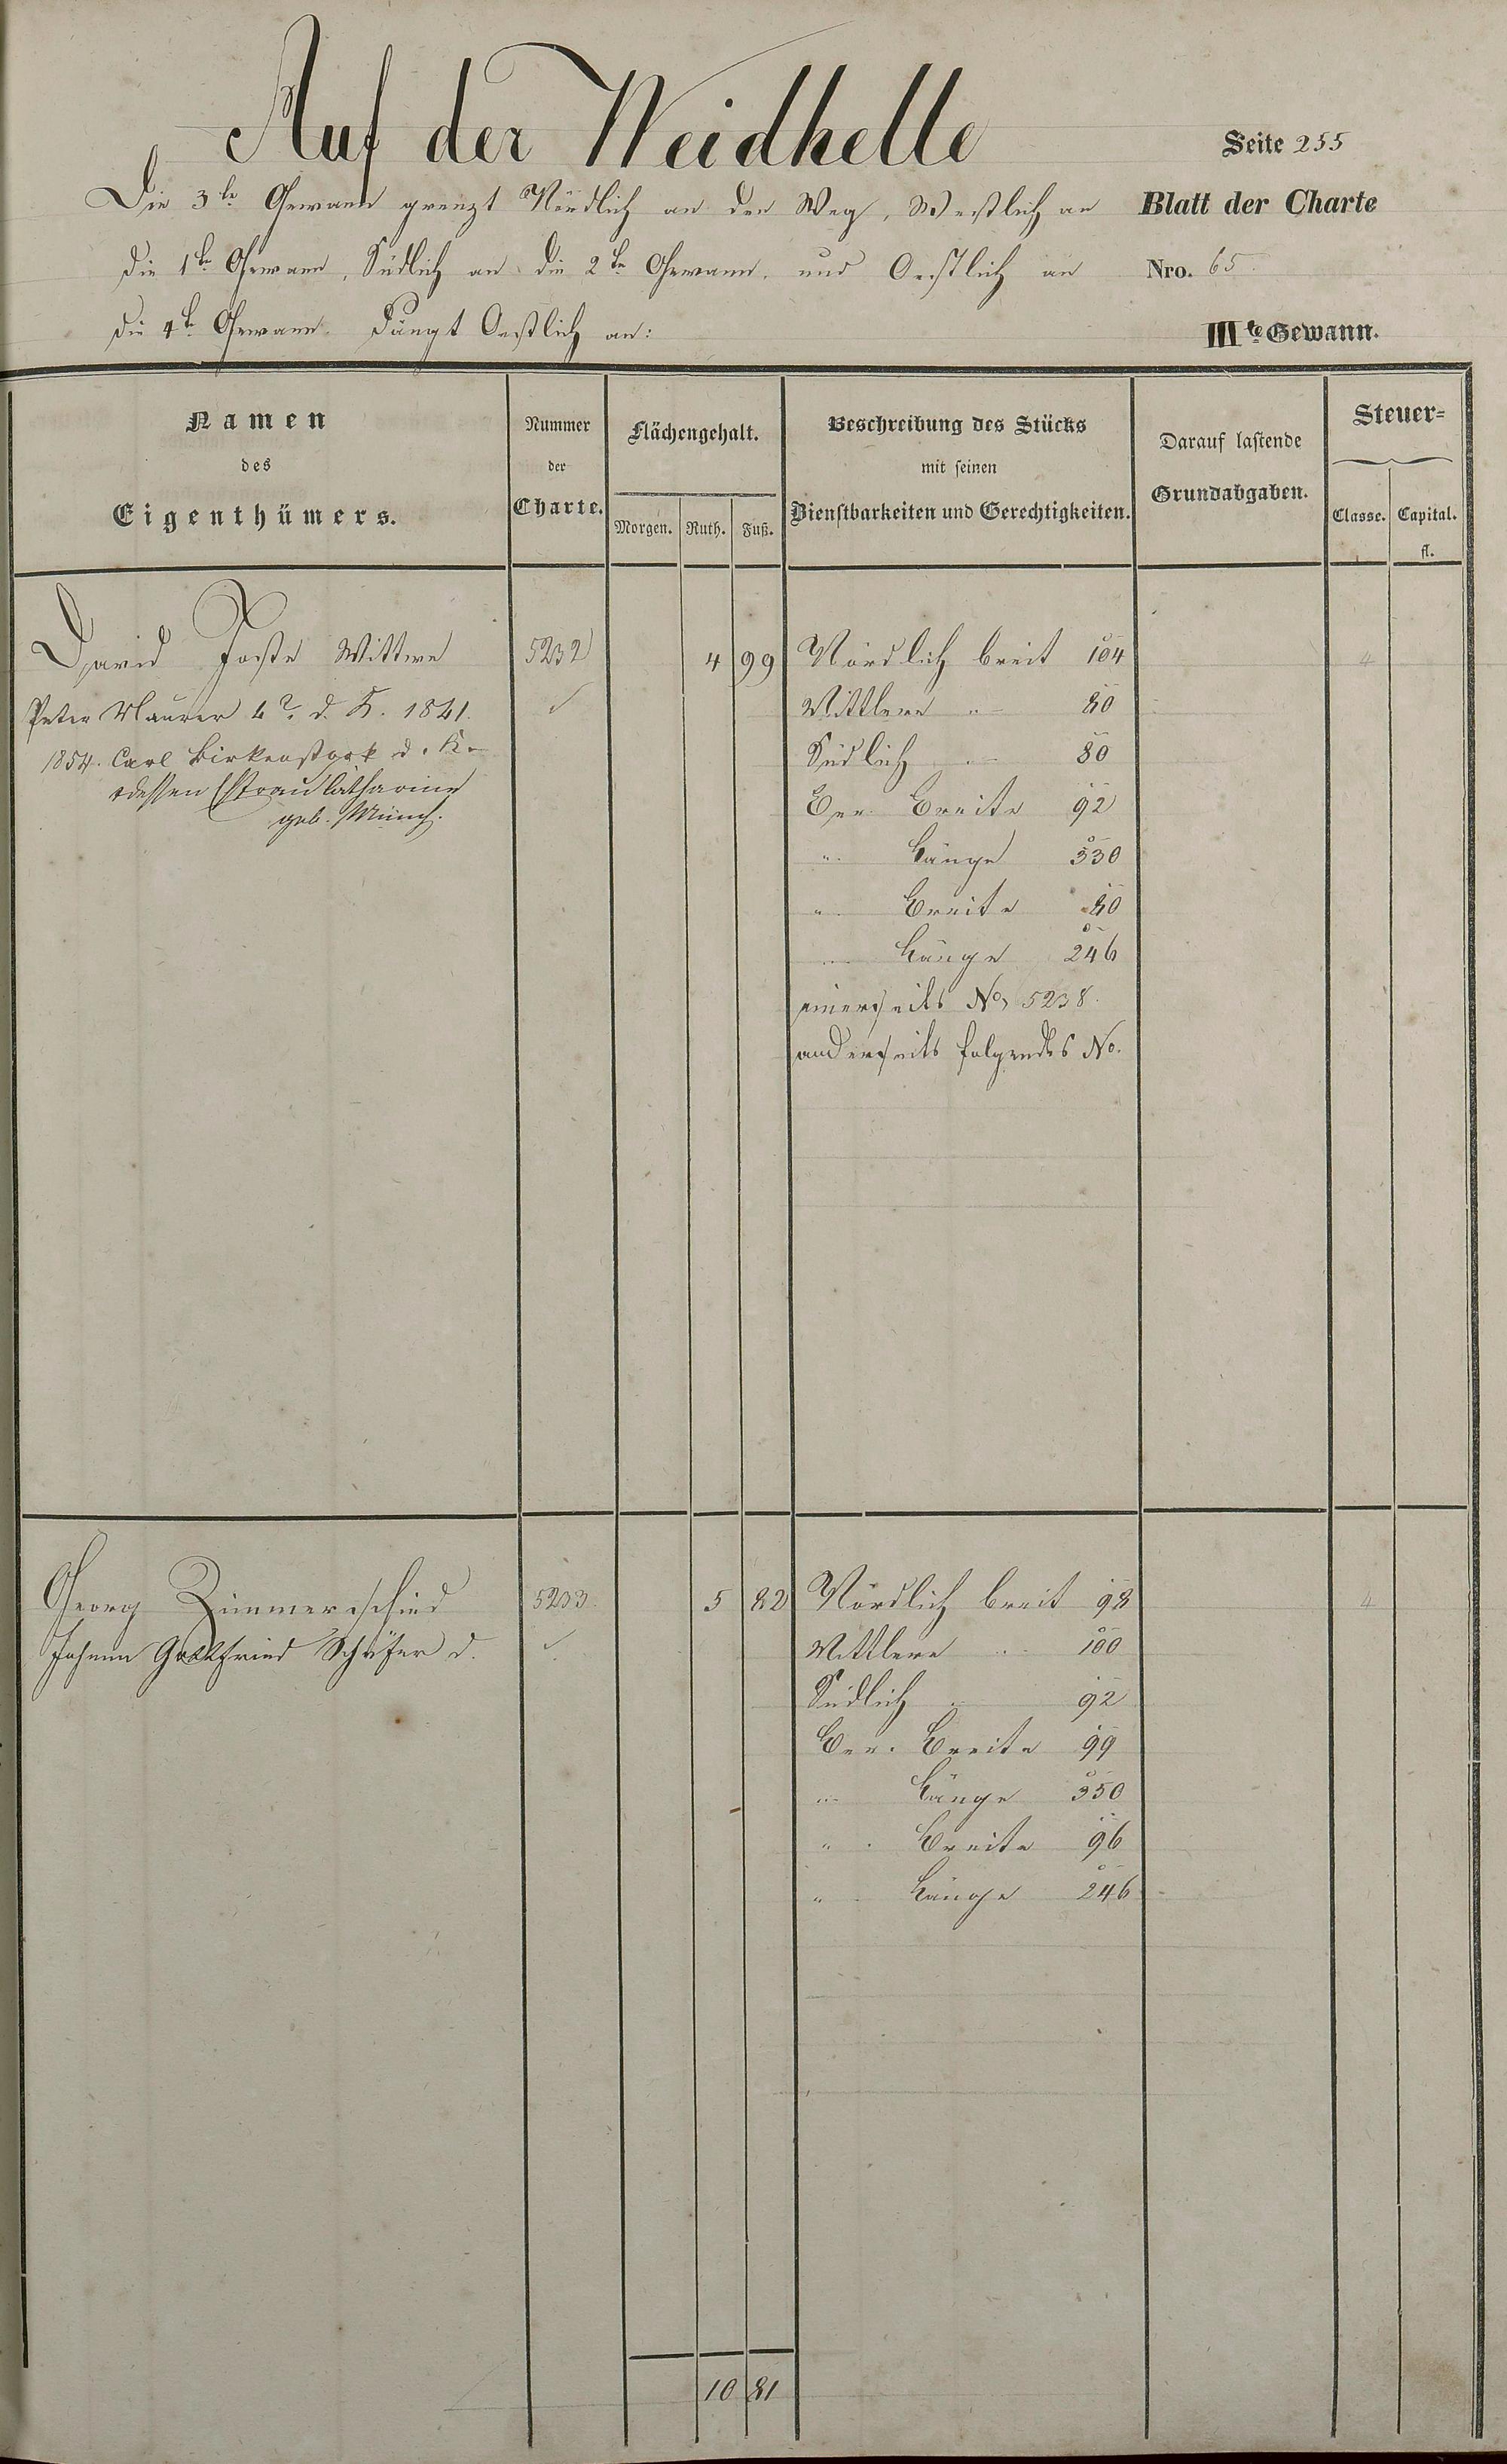 Auf der Weidhelle
Seite 255
Die 3te Gewann grenzt Nördlich an den Weg, Westlich an
Blatt der Charte
die 1te Gewann, Südlich an die 2te Gewann, und Oestlich an
Nro. 65
die 4te Gewann. Fängt Oestlich an:
IIIte Gewann.
Namen
des
Eigenthümers.
Nummer
der
Charte.
Flächengehalt.
Morgen. Ruth. Fuß.
Beschreibung des Stücks
mit seinen
Dienstbarkeiten und Gerechtigkeiten.
Darauf lastende
Grundabgaben.
Steuer-
Classe. Capital.
fl.
David Wittwe 5232 4 99 Nördlich breit 104 4
Peter Maurer d. K. 1841. Mittlere " 80
1854. Carl Birkenstock d. K. Südlich " 80
dessen Ehefrau Catharine
geb. Münch.
Ver. Breite 92
" Länge 330
" Breite 80
" Länge 246
einerseits No. 5238.
anderseits folgendes No.
Georg Zimmerschied 5233. 5 82 Nördlich breit 98 4
Johann Gottfried Schäfer d. Mittlere " 100
Südlich " 92
Ver. Breite 99
" Länge 350
" Breite 96
" Länge 246
10 81